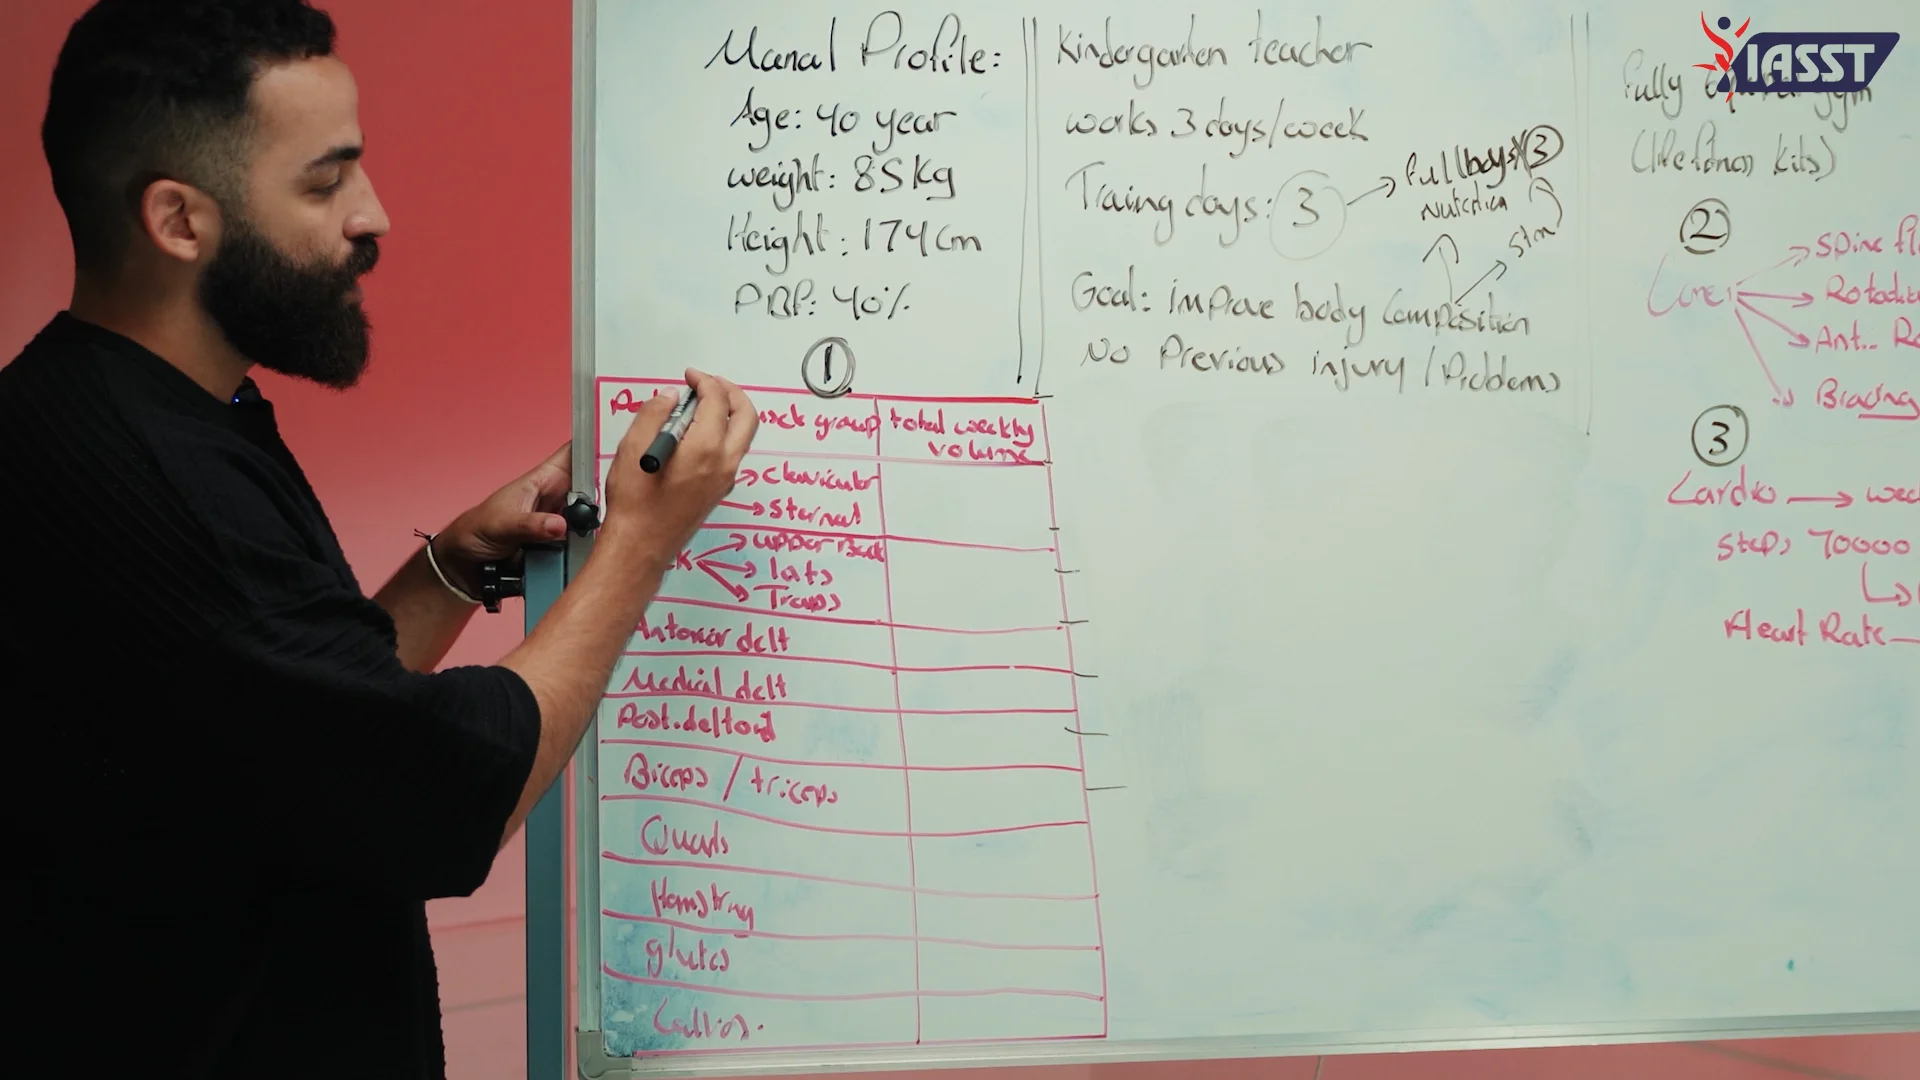 Manal Profile:
Age: 40 year
weight: 85kg
Height: 174cm
PBF: 40%
Kindergarten teacher
works 3 days/week
Traing days: 3
full body x 3
Nutrition
Goal: improve body Composition
No Previous injury / Problems
IASST
Fully gym
(life fitness kits)
1
group
total weekly
volume
Clavicular
Sternal
upper Back
lats
Traps
Anterior delt
Medial delt
Post. deltoid
Biceps / triceps
Quads
Hamstring
glutes
Calfs.
2
Core
Spine
Ant..
Bracing
3
Cardio
Steps 70000
Heart Rate